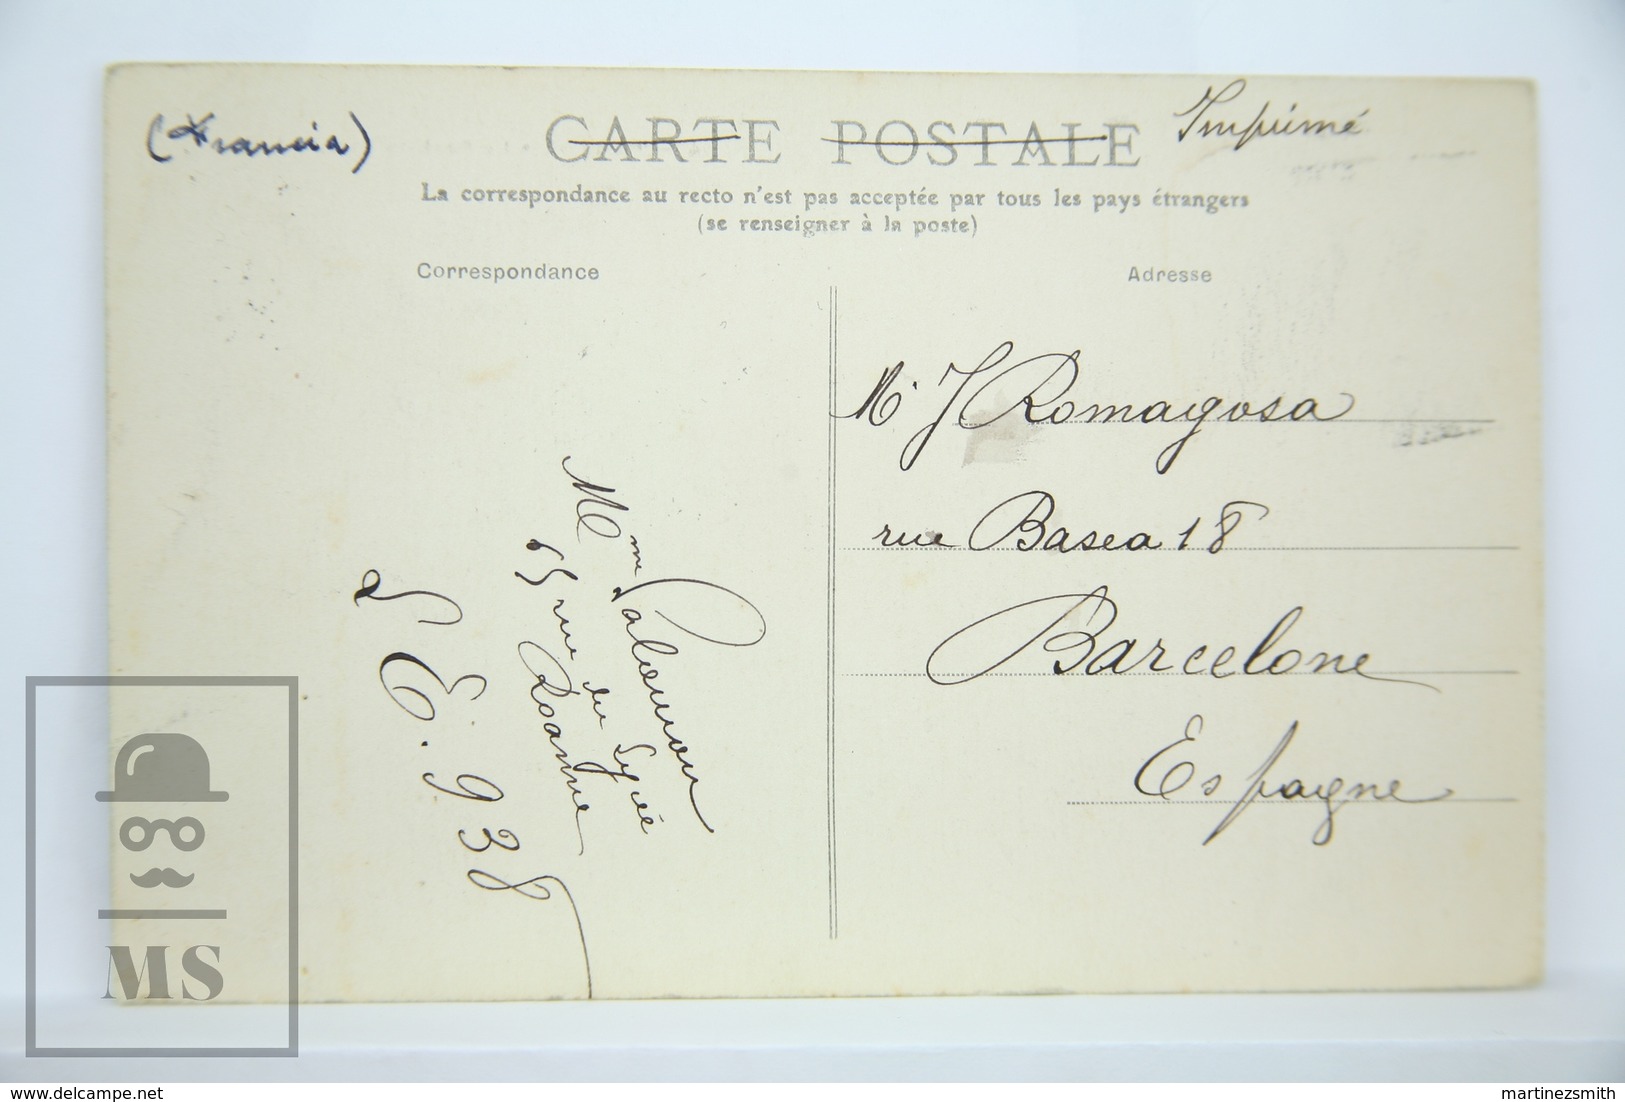 (Francia)
CARTE POSTALE
Imprimé
La correspondance au recto n'est pas acceptée par tous les pays étrangers
(se renseigner à la poste)
Correspondance
Adresse
Mme
65 rue du Lycée
Roanne
L.E. 938
Mr J Romagosa
rue Basea 18
Barcelone
Espagne
MS
delcampe.net
martinezsmith